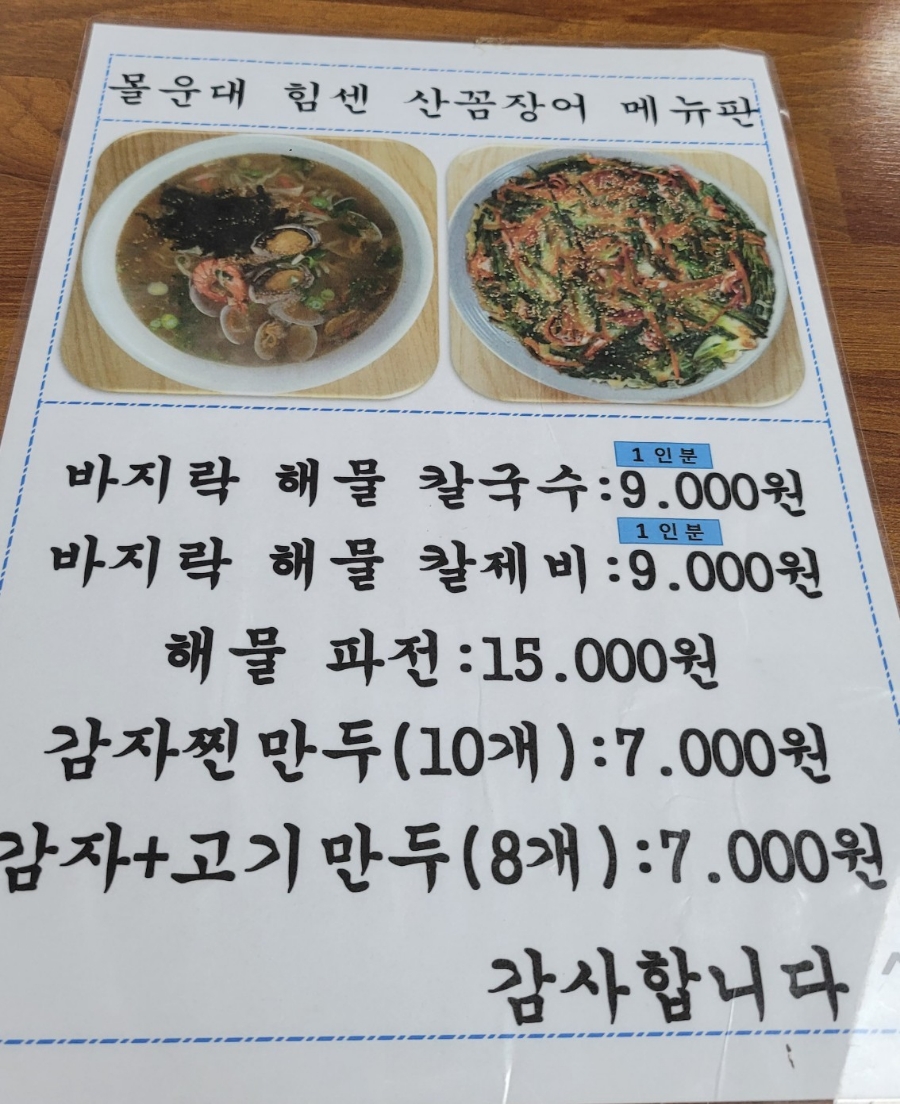 몰운대 힘센 산꼼장어 메뉴판
1인분
바지락 해물 칼국수:9.000원
1인분
바지락 해물 칼제비:9.000원
해물 파전:15.000원
감자찐만두(10개):7.000원
감자+고기만두(8개):7.000원
감사합니다